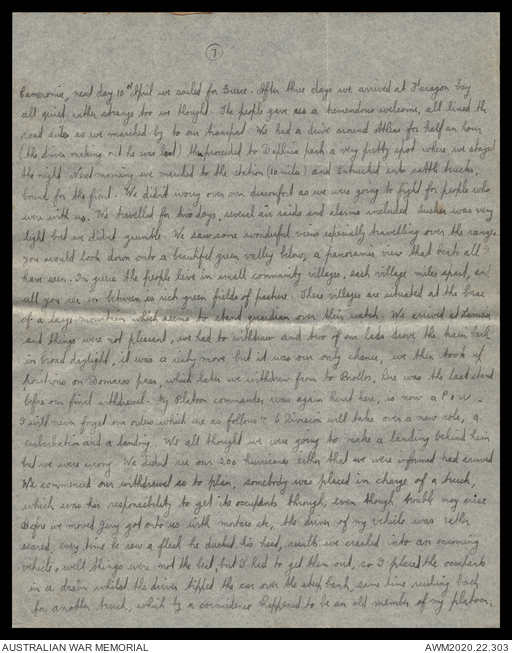 7
Cameronia, next day 10th April we sailed for Greece. After three days we arrived at Faragon bay
all quiet rather strange too we thought. The people gave us a tremendous welcome, all lined the
road sides as we marched by to our transport. We had a drive around Athens for half an hour
(the driver making out he was lost) then proceeded to Daphnia park a very pretty spot where we stayed
the night. Next morning we marched to the station (10 miles) and entrained into cattle trucks,
bound for the front. We didn't worry over our discomfort as we were going to fight for people who
were with us. We travelled for two days, several air raids and alarms included tucker was very
light but we didn't grumble. We saw some wonderful views especially travelling over the ranges
you would look down onto a beautiful green valley below, a panoramic view that beats all I
have seen. In Greece the people live in small community villages, each village miles apart, and
all you see in between is rich green fields of pasture. These villages are situated at the base
of a large mountain which seems to stand guardian over their watch. We arrived at Larissa
and things were not pleasent, we had to withdraw and two of our lads drove the train back
in broad daylight, it was a risky move but it was our only chance, we then took up
positions on Domacos pass, which later we withdrew from to Brollos, here was the last stand
before our final withdrawal. My Platoon commander was again hurt here, is now a P.O.W.
I will never forget our orders which are as follows:- 6 Division will take over a new role, a
embarkation and a landing. We all thought we were going to make a landing behind him
but we were wrong. We didn't see our 200 hurricanes either that we were informed had arrived
We commenced our withdrawal as to plan, somebody was placed in charge of a truck,
which was his responsibility to get its occupants through, even though trouble may arise
Before we moved Jerry got onto us with mortars etc, the driver of my vehicle was rather
scared, every time he saw a flash he ducked his head, results we crashed into an oncoming
vehicle, well things were not the best but I had to get them out, so I placed the occupants
in a drain whilst the driver tipped the car over the steep bank, same time rushing back
for another truck, which by a coincidence happened to be an old member of my platoon,
AUSTRALIAN WAR MEMORIAL
AWM2020.22.303